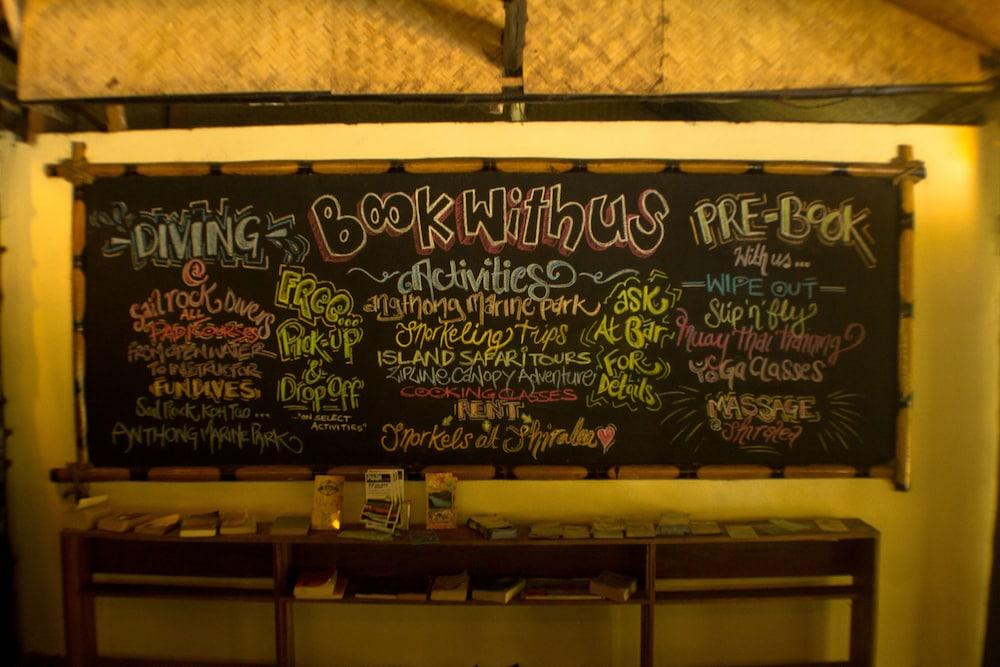 DIVING
@
Sail rock Divers
ALL
PADI COURSES
FROM OPEN WATER
TO INSTRUCTOR
FUN DIVES!
Sail Rock, Koh Tao ...
ANTHONG MARINE PARK
FREE...
Pick-UP
&
Drop OFF
..."ON SELECT
ACTIVITIES"
BOOK With US
Activities
angthong Marine park
Snorkeling Trips
ISLAND SAFARI TOURS
ZIPLINE CANOPY Adventure
COOKING CLASSES
RENT
Snorkels at Shiralea
ASK
At Bar
FOR
Details
PRE-BOOK
With us...
WIPE OUT
Slip 'n' fly
Muay Thai Training
YOGA CLASSES
MASSAGE
@ Shiralea